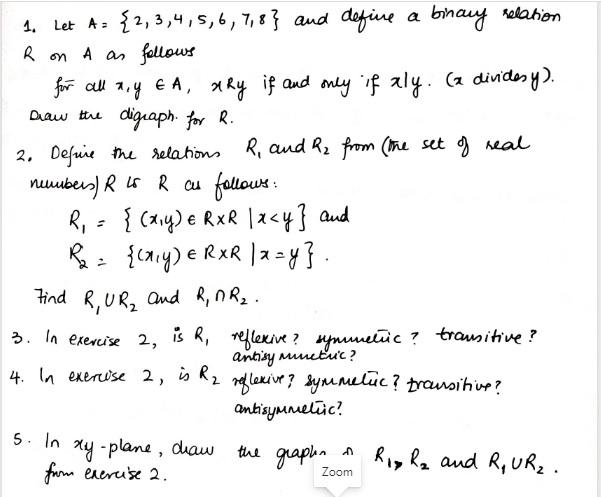 1. Let A = {2,3,4,5,6,7,8} and define a binary relation
R on A as follows
for all x,y ∈ A, xRy if and only if x|y. (x divides y).
Draw the digraph for R.
2. Define the relations R₁ and R₂ from (the set of real
numbers) R to R as follows:
R₁ = {(x,y) ∈ R×R | x<y} and
R₂ = {(x,y) ∈ R×R | x=y}.
Find R₁∪R₂ and R₁∩R₂.
3. In exercise 2, is R₁ reflexive? symmetric? transitive?
antisymmetric?
4. In exercise 2, is R₂ reflexive? symmetric? transitive?
antisymmetric?
5. In xy-plane, draw the graphs R₁, R₂ and R₁∪R₂.
from exercise 2.
Zoom